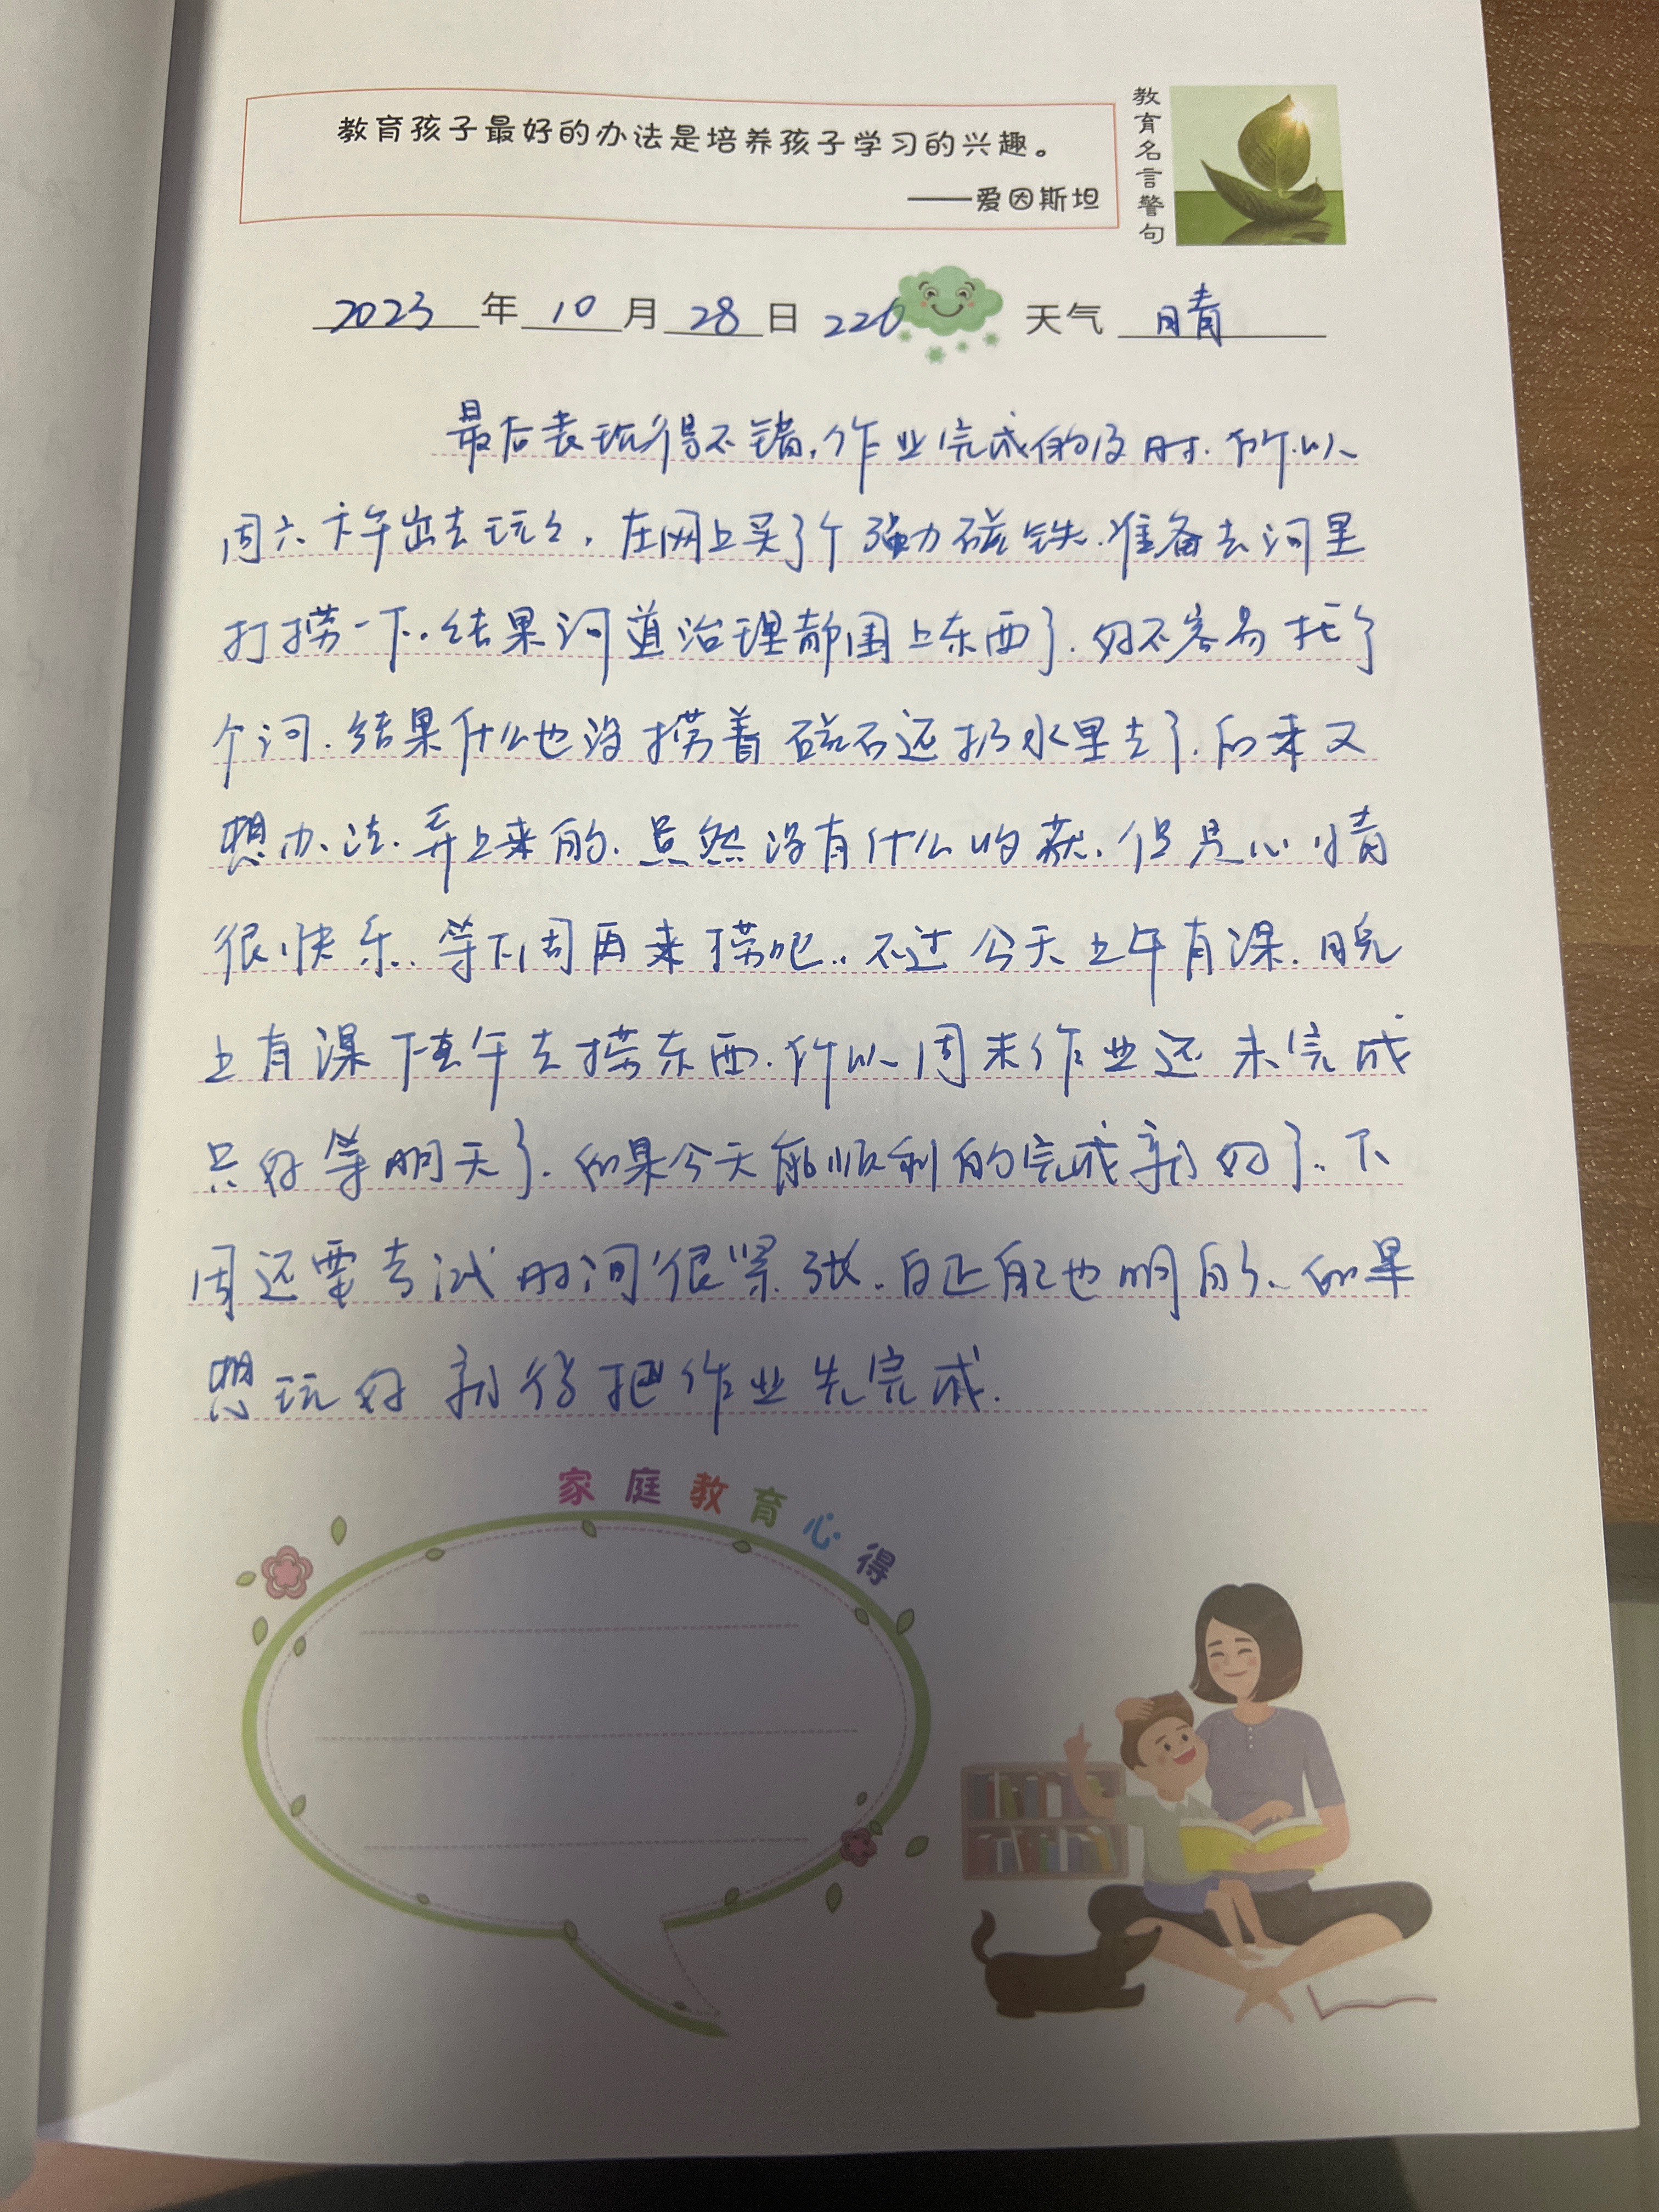 教育孩子最好的办法是培养孩子学习的兴趣。
——爱因斯坦
教育名言警句
2023年10月28日 226 天气 晴
最后表现得不错,作业完成的及时.所以
周六下午出去玩玩,在网上买了个强力磁铁.准备去河里
打捞一下..结果河道治理都围上东西了.好不容易找了
个河.结果什么也没捞着 磁石还扔水里去了.后来又
想办法.弄上来的.虽然没有什么收获.但是心情
很快乐.等下周再来捞吧..不过今天上午有课.晚
上有课 下午去捞东西.所以周末作业还未完成
只好等明天了.如果今天能顺利的完成就好了..下
周还要考试时间很紧张.白正自己也明白.如果
想玩好就得把作业先完成.
家庭教育心得